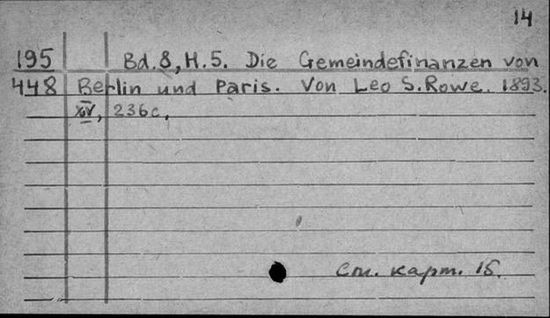 14
195 Bd. 8, H. 5. Die Gemeindefinanzen von
448 Berlin und Paris. Von Leo S. Rowe. 1893.
XIV, 236 c,
См. карт. 15.